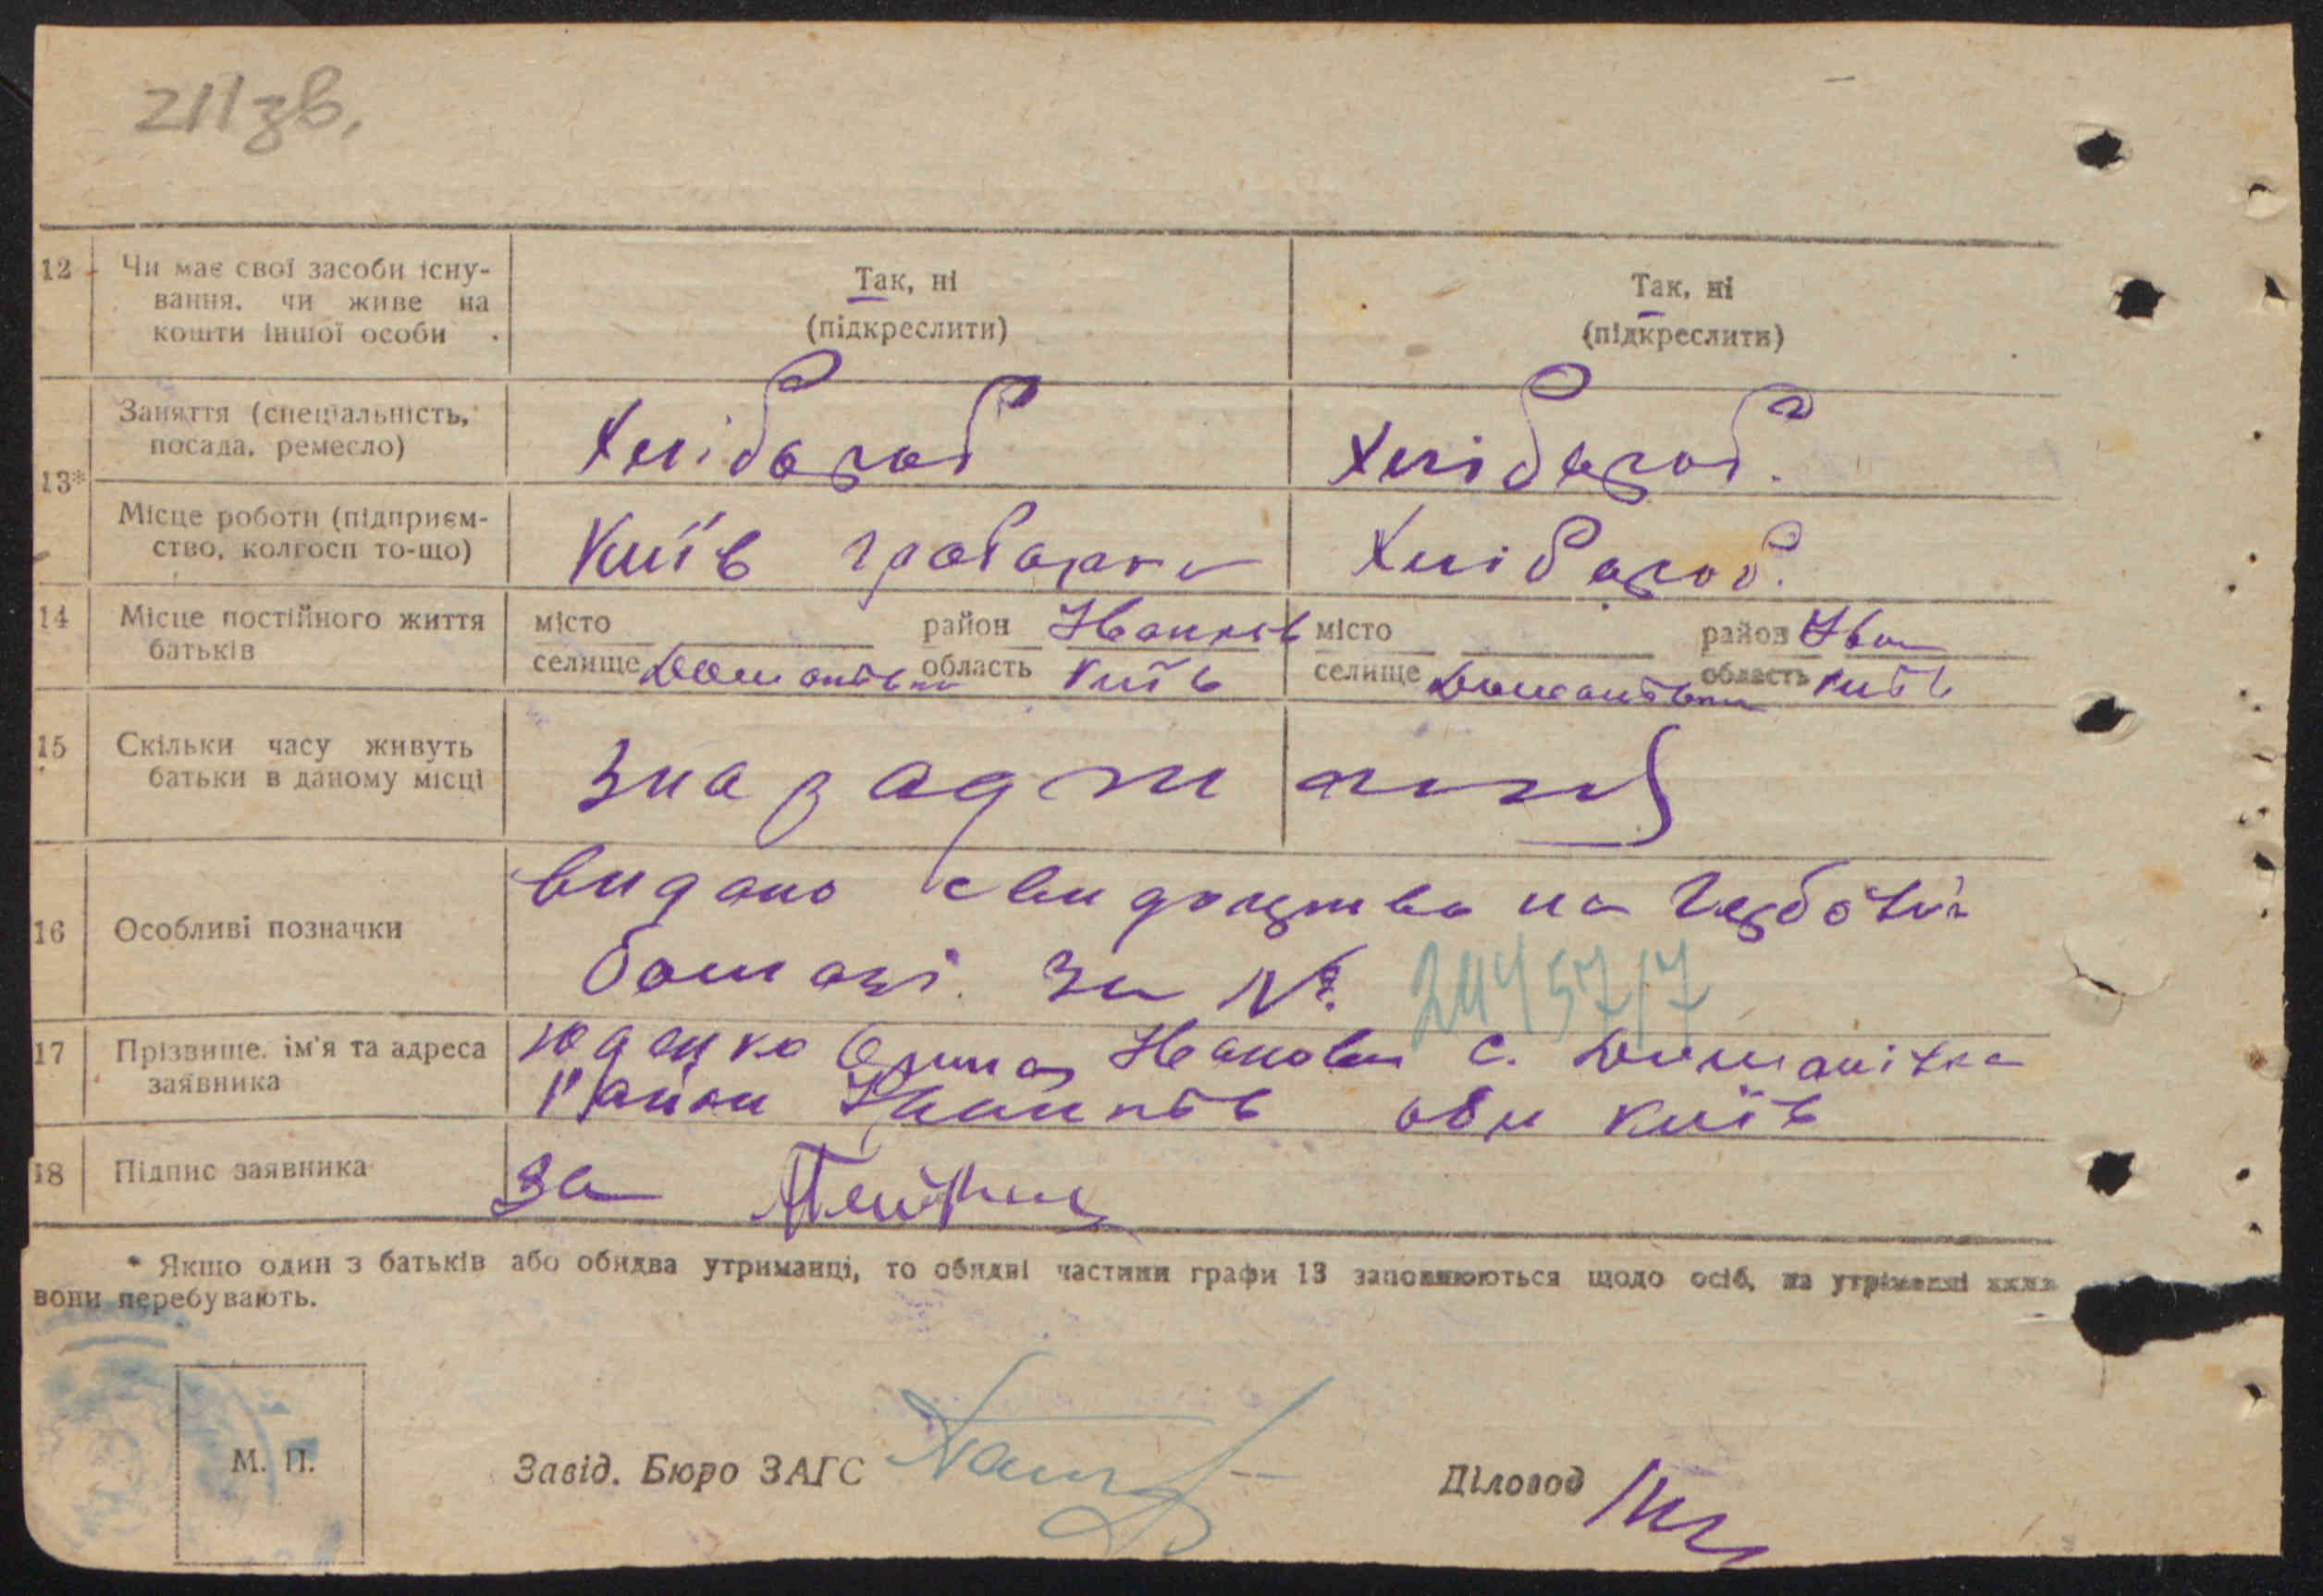 211зв.
12 Чи має свої засоби існу-
вання, чи живе на
кошти іншої особи
Так, ні
(підкреслити)
Так, ні
(підкреслити)
13* Заняття (спеціальність,
посада, ремесло)
Хлібороб
Хлібороб.
Місце роботи (підприєм-
ство, колгосп то-що)
Київ
Хлібороб.
14 Місце постійного життя
батьків
місто район Іванків
селище Доманівка область Київ
місто район Іван
селище Доманівка область Київ
15 Скільки часу живуть
батьки в даному місці
16 Особливі позначки
видано свидоцтво на
за №
17 Прізвище, ім'я та адреса
заявника
Юденко Івановна с. Доманівка
Район Іванків обл Київ
18 Підпис заявника
за
* Якщо один з батьків або обидва утриманці, то обидві частини графи 13 заповнюються щодо осіб, на утриманні яких
вони перебувають.
М. П.
Завід. Бюро ЗАГС
Діловод